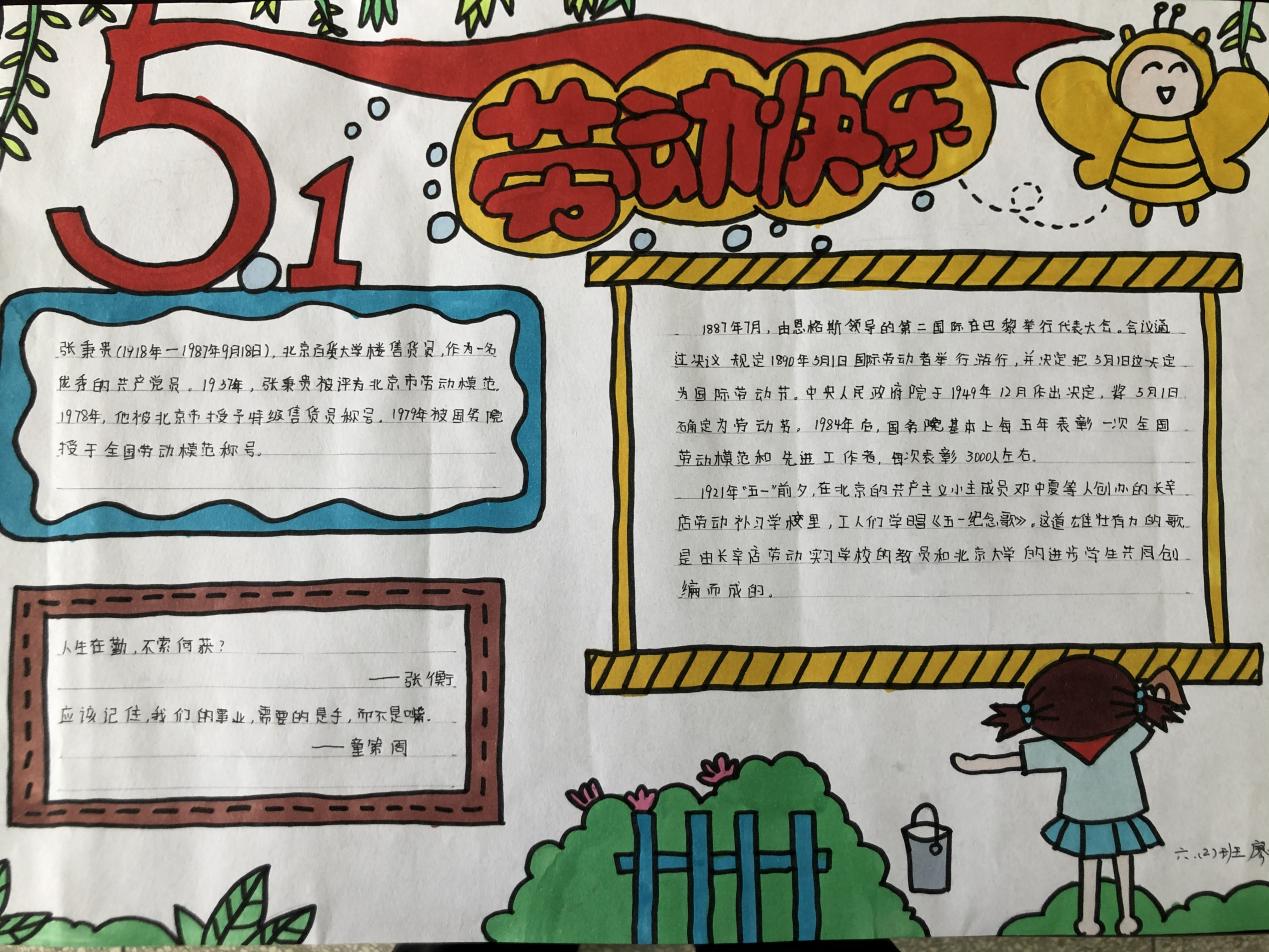 5.1
劳动快乐
张秉贵(1918年—1987年9月18日),北京百货大学楼售货员,作为一名
优秀的共产党员。1957年,张秉贵被评为北京市劳动模范.
1978年,他被北京市授予特级售货员称号。1979年被国务院
授于全国劳动模范称号。
人生在勤,不索何获?
——张衡
应该记住,我们的事业,需要的是手,而不是嘴.
——童第周
1887年7月,由恩格斯领导的第二国际在巴黎举行代表大会。会议通
过决议 规定1890年5月1日国际劳动者举行游行,并决定把5月1日这一天定
为国际劳动节。中央人民政府院于1949年12月作出决定,将5月1日
确定为劳动节。1984年后,国务院基本上每五年表彰一次全国
劳动模范和先进工作者,每次表彰3000人左右.
1921年“五一”前夕,在北京的共产主义小主成员邓中夏等人创办的长辛
店劳动补习学校里,工人们学唱《五一纪念歌》。这道雄壮有力的歌
是由长辛店劳动实习学校的教员和北京大学的进步学生共同创
编而成的。
六.(2)班 廖